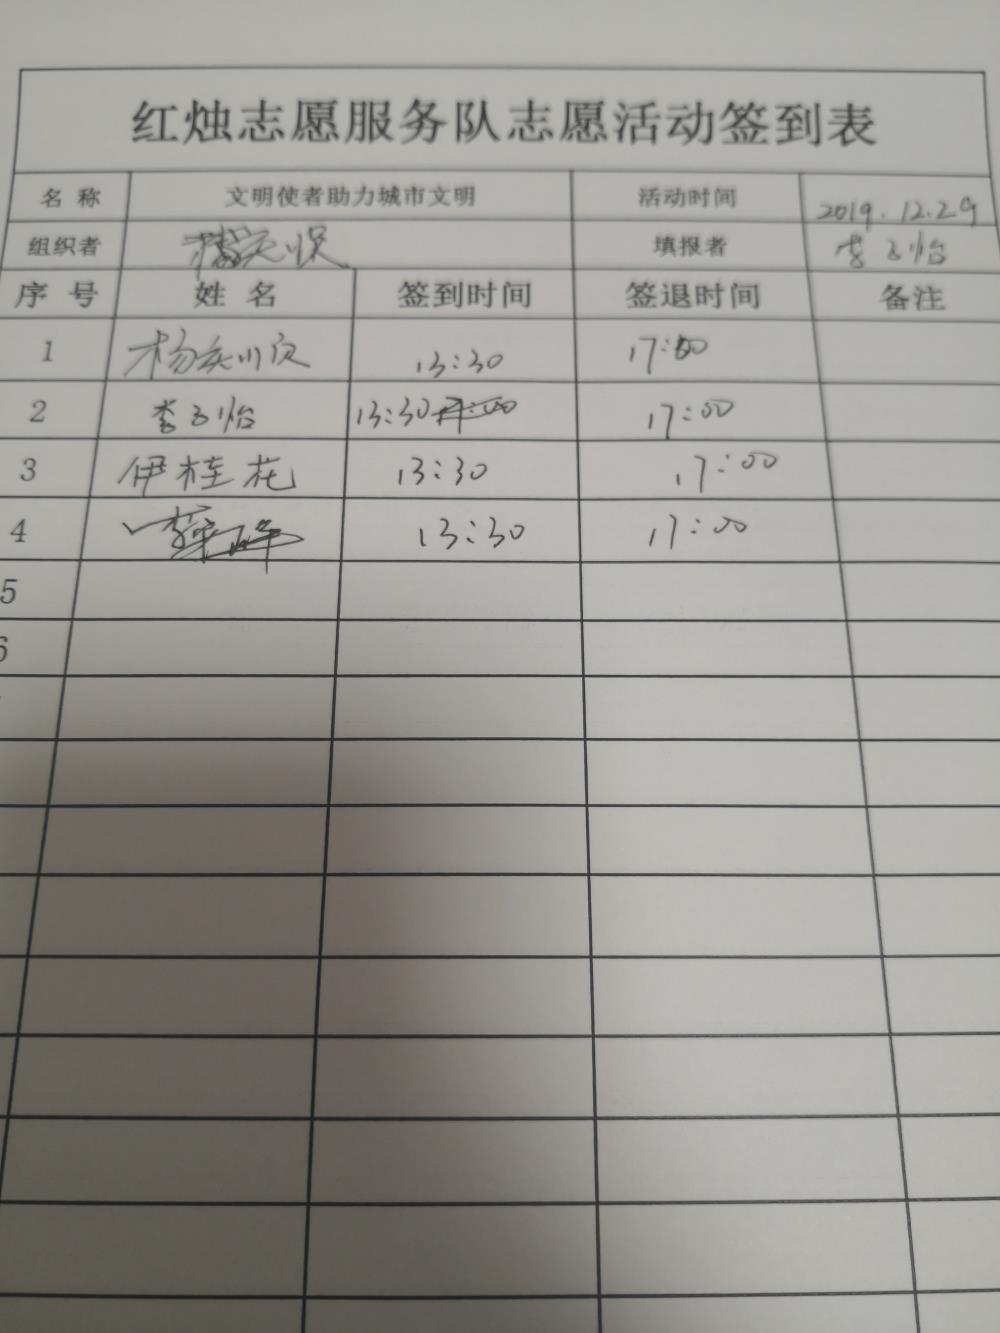 红烛志愿服务队志愿活动签到表
名 称 文明使者助力城市文明 活动时间 2019.12.29
组织者 填报者 李子怡
序 号 姓 名 签到时间 签退时间 备注
1 杨 13:30 17:00
2 李子怡 13:30 17:00
3 伊桂花 13:30 17:00
4 13:30 17:00
5
6